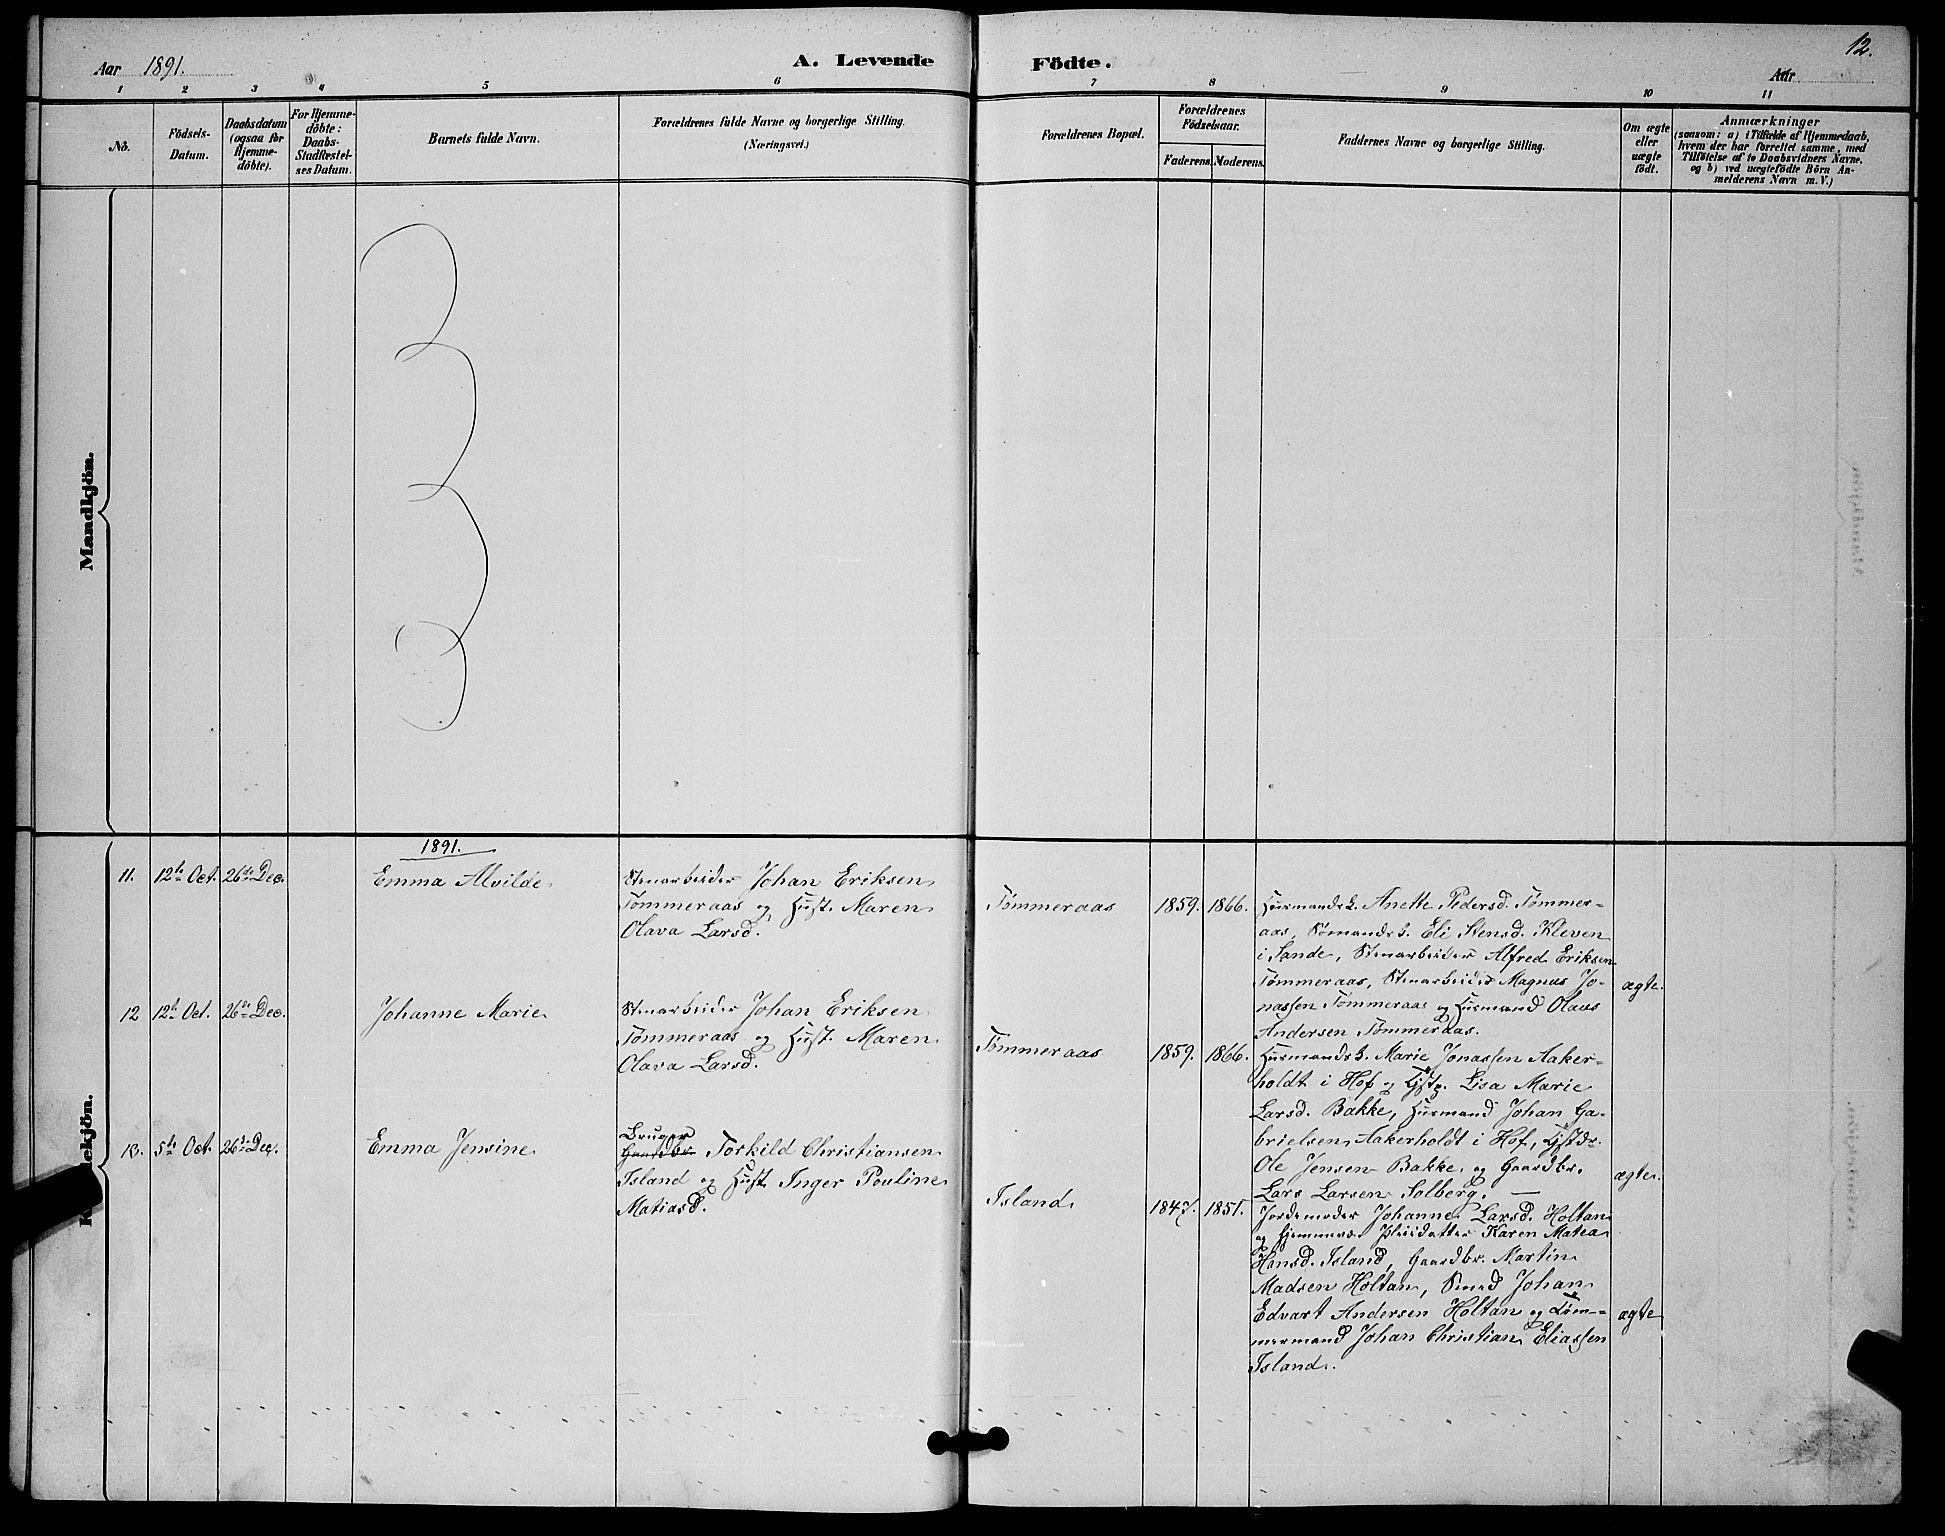 Aar 1891.
A. Levende Födte.
12.
Aar
1 2 3 4 5 6 7 8 9 10 11
No.
Födsels-
Datum.
Daabsdatum
(ogsaa för
Hjemme-
döbte).
For Hjemme-
döbte:
Daabs-
Stadfæstel-
ses Datum.
Barnets fulde Navn.
Forældrenes fulde Navne og borgerlige Stilling.
(Næringsvei.)
Forældrenes Bopæl.
Forældrenes
Födselsaar.
Faderens. Moderens.
Faddernes Navne og borgerlige Stilling.
Om ægte
eller
uægte
födt.
Anmærkninger
(saasom: a) i Tilfælde af Hjemmedaab,
hvem der har forrettet samme, med
Tilföielse af to Daabsvidners Navne.
og b) ved uægtefödte Börn An-
melderens Navn m. V.)
Mandkjön.
1891.
11. 12te Oct. 26de Dec.
Emma Alvilde
Stenarbeider Johan Eriksen
Tømmeraas og Hust. Maren
Olava Larsd.
Tømmeraas 1859. 1866.
Husmandsk. Anette Pedersd. Tømmer-
aas, Sømandsk. Eli Stensd. Kleven
i Sande, Stenarbeider Alfred Eriksen
Tømmeraas, Stenarbeider Magnus Jo-
nassen Tømmeraas og Husmand Olaus
Andersen Tømmeraas.
ægte.
12 12te Oct. 26de Dec.
Johanne Marie
Stenarbeider Johan Eriksen
Tømmeraas og Hust. Maren
Olava Larsd.
Tømmeraas 1859. 1866.
Husmandsk. Marie Jonassen Aaker-
holdt i Hof og Lisa Marie
Larsd. Bakke, Husmand Johan Ga-
brielsen Aakerholdt i Hof,
Ole Jensen Bakke og Gaardbr.
Lars Larsen Solberg. —
ægte.
13. 5te Oct. 26de Dec.
Emma Jensine
Bruger
Gaardbr. Torkild Christiansen
Island og Hust. Inger Pouline
Matiasd.
Island 1847. 1851.
Jordemoder Johanne Larsd. Holtan
og Hjemmeværende Pleiedatter Karen Matea
Hansd. Island, Gaardbr. Martin
Madsen Holtan, Smed Johan
Edvart Andersen Holtan og Tøm-
mermand Johan Christian Eliassen
Island.
ægte